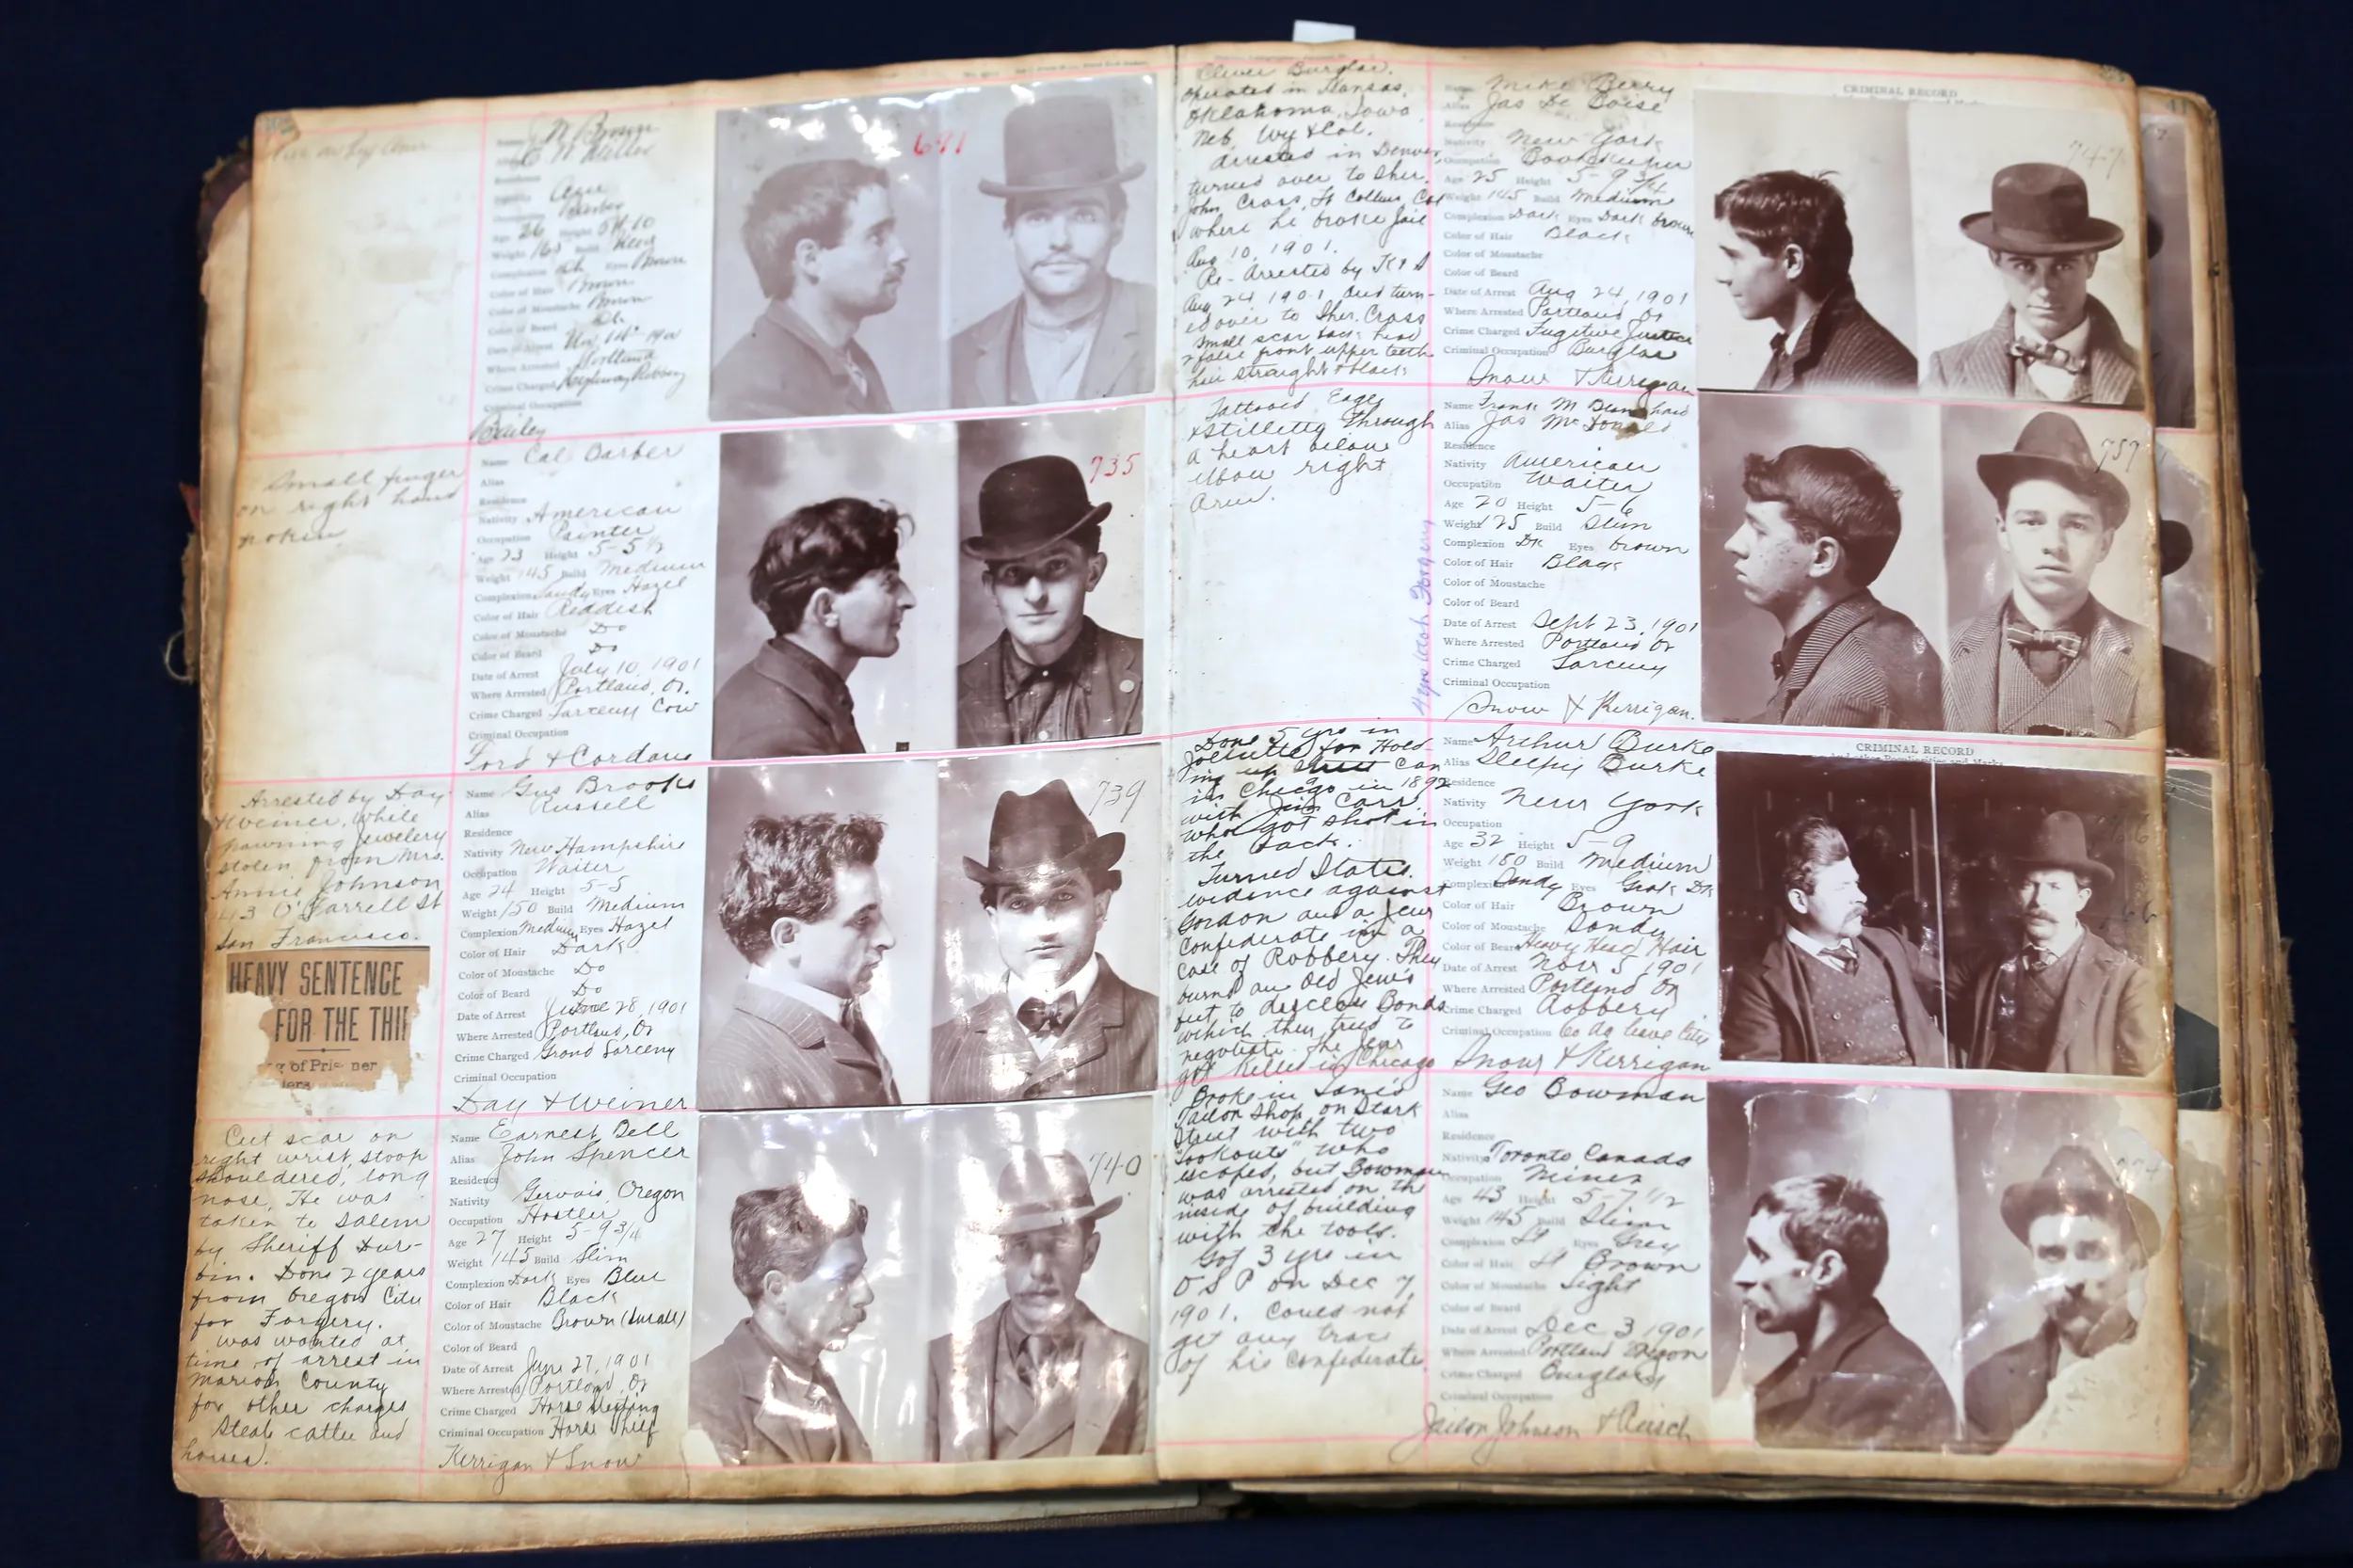 J N Brown
Age 26 Height 5ft 10
Weight 163 Build Med
Eyes Brown
Color of Hair Brown
Color of Moustache Brown
Color of Beard
Date of Arrest
Where Arrested Portland
Crime Charged Highway Robbery
Criminal Occupation
Bailey
691
Small finger
on right hand
Name Cal Barber
Alias
Residence
Nativity American
Occupation Painter
Age 23 Height 5-5 1/2
Weight 145 Build Medium
Complexion Sandy Eyes Hazel
Color of Hair Reddish
Color of Moustache Do
Color of Beard Do
Date of Arrest July 10, 1901
Where Arrested Portland, Or.
Crime Charged Larceny Cow
Criminal Occupation
Ford & Cordano
735
Arrested by Day
& Weiner, while
pawning Jewelery
stolen from Mrs.
Annie Johnson
43 O'Farrell St
San Francisco.
HEAVY SENTENCE
FOR THE THI
g of Pris ner
Name Gus Brooks
Alias Russell
Residence
Nativity New Hampshire
Occupation Waiter
Age 24 Height 5-5
Weight 150 Build Medium
Complexion Medium Eyes Hazel
Color of Hair Dark
Color of Moustache Do
Color of Beard Do
Date of Arrest June 28, 1901
Where Arrested Portland, Or
Crime Charged Grand Larceny
Criminal Occupation
Day & Weiner
739
Cut scar on
right wrist, stoop
shouldered, long
nose. He was
taken to Salem
by Sheriff Dur-
bin. Done 2 years
from Oregon City
for Forgery.
was wanted at
time of arrest in
Marion County
for other charges
Steals cattle and
horses.
Name Earnest Bell
Alias John Spencer
Residence
Nativity Gervais, Oregon
Occupation Hostler
Age 27 Height 5-9 3/4
Weight 145 Build Slim
Complexion Dark Eyes Blue
Color of Hair Black
Color of Moustache Brown (Small)
Color of Beard
Date of Arrest June 27, 1901
Where Arrested Portland, Or
Crime Charged Horse Stealing
Criminal Occupation Horse Thief
Kerrigan & Snow
740
Clever Burglar.
operated in Kansas,
Oklahoma, Iowa
Neb. Wy & Col.
arrested in Denver,
turned over to Sher.
John Cross, Ft Collins, Col
where he broke Jail
Aug 10, 1901.
Re-Arrested by K & S
Aug 24 1901 and turn-
ed over to Sher. Cross
Small scar back head
2 false front upper teeth
hair straight & black
Name Mike Berry
Alias
Residence
Nativity New York
Occupation Bookkeeper
Age 25 Height 5-9 3/4
Weight 145 Build Medium
Complexion Dark Eyes Dark brown
Color of Hair Black
Color of Moustache
Color of Beard
Date of Arrest Aug 24, 1901
Where Arrested Portland Or
Crime Charged Fugitive Justice
Criminal Occupation Burglar
Snow & Kerrigan
CRIMINAL RECORD
747
Tattooed Eagle
& Stilletto through
a heart below
elbow right
Arm.
Name Frank M
Alias Jas McDonald
Residence
Nativity American
Occupation Waiter
Age 20 Height 5-6
Weight 125 Build Slim
Complexion DK Eyes brown
Color of Hair Black
Color of Moustache
Color of Beard
Date of Arrest Sept 23, 1901
Where Arrested Portland Or
Crime Charged Larceny
Criminal Occupation
Snow & Kerrigan.
757
Done 5 yrs in
Jolliette for Hold-
ing up Street Car
in Chicago in 1892
with Jim Carr.
who got shot in
the back.
Turned States
evidence against
Gordon and a Jew
Confederate in a
case of Robbery. They
burnt an old Jew's
feet to disclose Bonds
which they tried to
negotiate. The Jew
got killed in Chicago
Name Arthur Burke
Alias Sleepy Burke
Residence
Nativity New York
Occupation
Age 32 Height 5-9
Weight 180 Build Medium
Complexion Sandy Eyes
Color of Hair Brown
Color of Moustache Sandy
Color of Beard Heavy Head Hair
Date of Arrest Nov 5 1901
Where Arrested Portland Or
Crime Charged Robbery
Criminal Occupation 60 da leave City
Snow & Kerrigan
CRIMINAL RECORD
And other Peculiarities and Marks
Broke in
Tailor Shop on Stark
Street with two
"Lookouts" who
escaped, but Bowman
was arrested on the
inside of building
with the tools.
Got 3 yrs in
O S P on Dec 7,
1901. Could not
get any trace
of his Confederates
Name Geo Bowman
Alias
Residence
Nativity Toronto Canada
Occupation Miner
Age 43 Height 5-7 1/2
Weight 145 Build Slim
Complexion Lt Eyes Grey
Color of Hair Lt Brown
Color of Moustache Light
Color of Beard
Date of Arrest Dec 3 1901
Where Arrested Portland Oregon
Crime Charged Burglary
Criminal Occupation
Jailor Johnson & Reisch